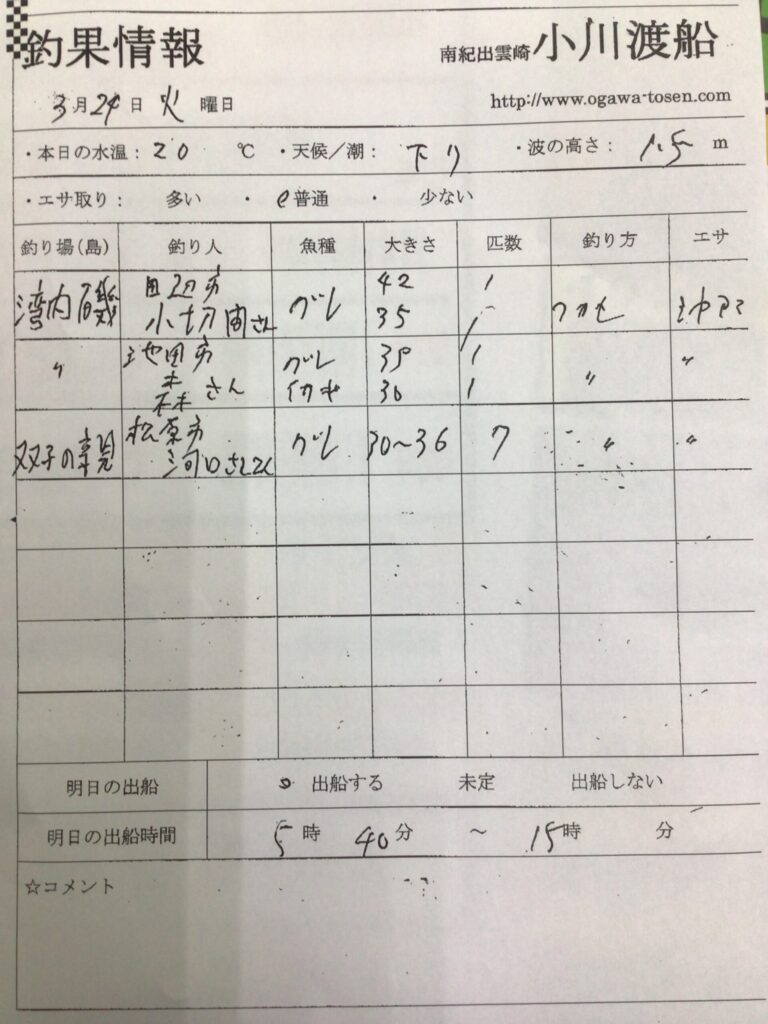 釣果情報
南紀出雲崎 小川渡船
3月24日 火 曜日
http://www.ogawa-tosen.com
・本日の水温：20 ℃ ・天候／潮： 下り ・波の高さ： 1.5 m
・エサ取り： 多い ・ 普通 ・ 少ない
釣り場(島) 釣り人 魚種 大きさ 匹数 釣り方 エサ
湾内磯 田辺市 グレ 42 1 フカセ
小切間さん 35 1
〃 池田市 グレ 39 1 〃 〃
森さん イガミ 36 1
双子の親 松原市 グレ 30〜36 7 〃 〃
河口さん
明日の出船 出船する 未定 出船しない
明日の出船時間 5時 40分 〜 15時 分
☆コメント